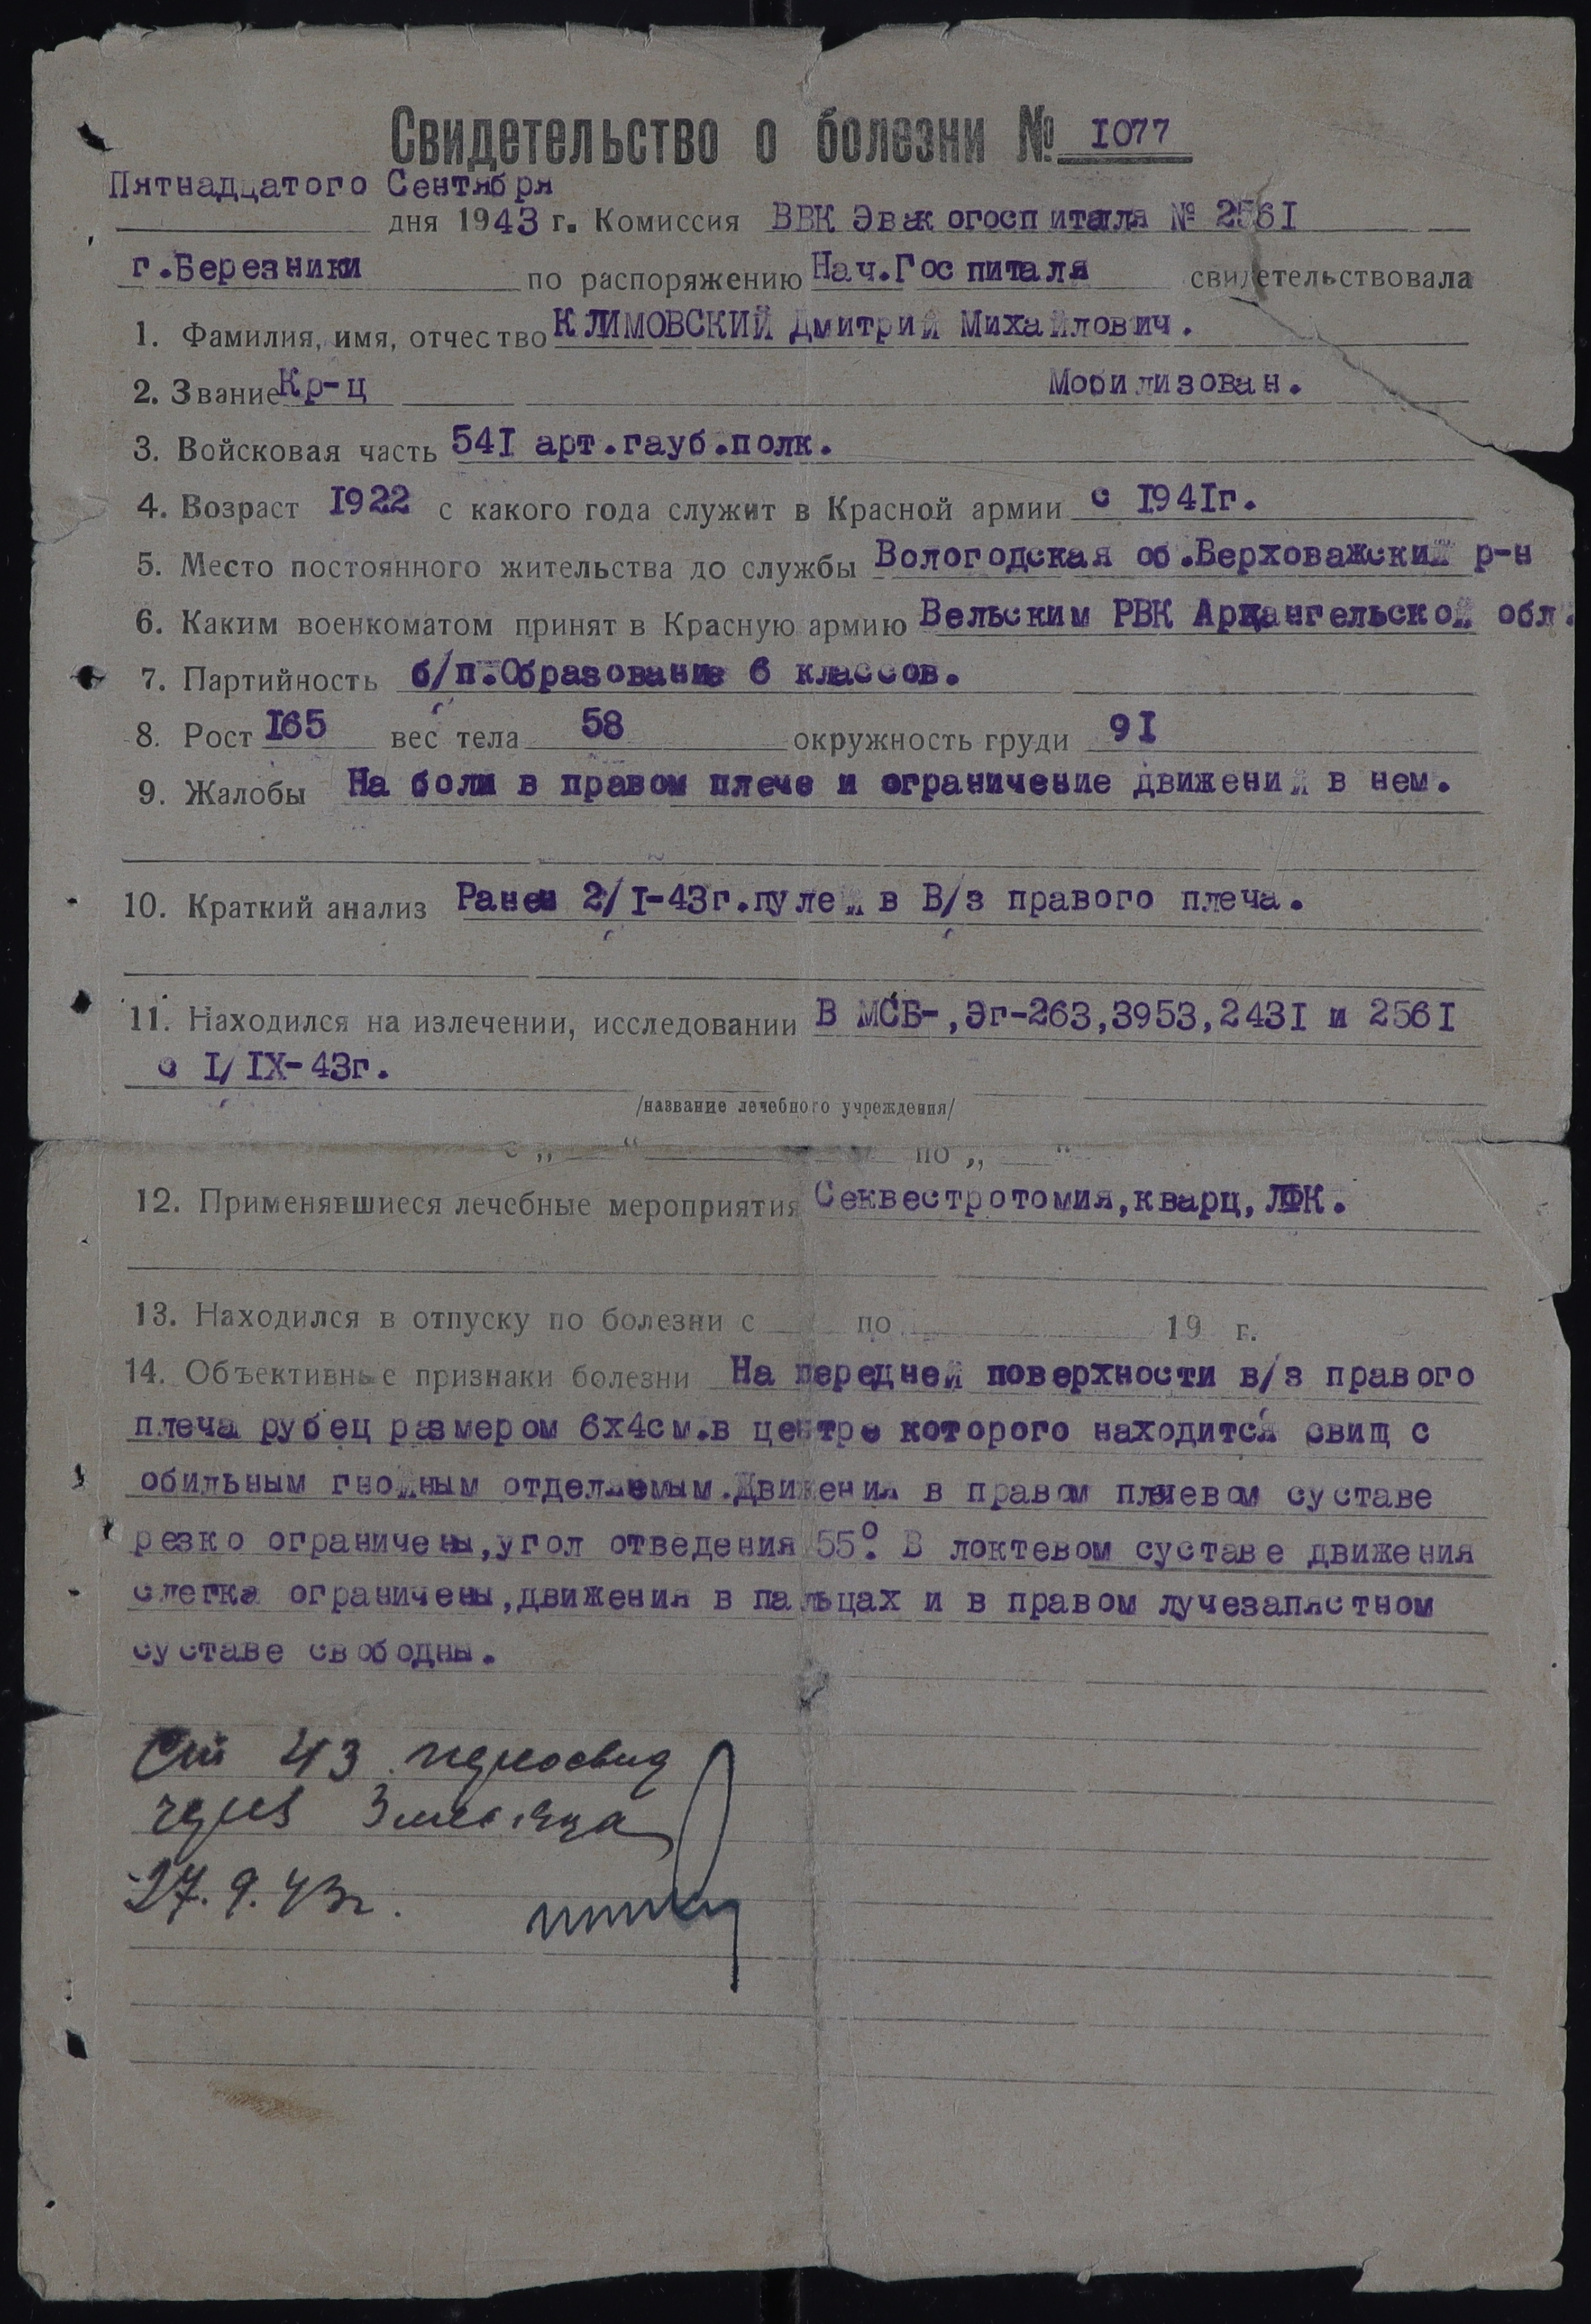 Свидетельство о болезни № I077
Пятнадцатого Сентября
дня 1943 г. Комиссия ВВК Эвакогоспиталя № 256I
г.Березники по распоряжению Нач.Госпиталя свидетельствовала
1. Фамилия, имя, отчество КЛИМОВСКИЙ Дмитрий Михайлович.
2. Звание Кр-ц Мобилизован.
3. Войсковая часть 54I арт.гауб.полк.
4. Возраст I922 с какого года служит в Красной армии с I94Iг.
5. Место постоянного жительства до службы Вологодская об.Верховажский р-н
6. Каким военкоматом принят в Красную армию Вельским РВК Архангельской обл.
7. Партийность б/п.Образование 6 классов.
8. Рост I65 вес тела 58 окружность груди 9I
9. Жалобы На боли в правом плече и ограничение движений в нем.
10. Краткий анализ Ранен 2/I-43г.пулей в В/з правого плеча.
11. Находился на излечении, исследовании В МСБ-,Эг-263,3953,243I и 256I
с I/IX-43г.
/название лечебного учреждения/
с „ “ по „ “
12. Применявшиеся лечебные мероприятия Секвестротомия,кварц,ЛФК.
13. Находился в отпуску по болезни с по 19 г.
14. Объективные признаки болезни На передней поверхности в/з правого
плеча рубец размером 6х4см.в центре которого находится свищ с
обильным гнойным отделяемым.Движения в правом плечевом суставе
резко ограничены,угол отведения 55°. В локтевом суставе движения
слегка ограничены,движения в пальцах и в правом лучезапястном
суставе свободны.
Ст 43 переосвид
через 3 месяца
27.9.43г.